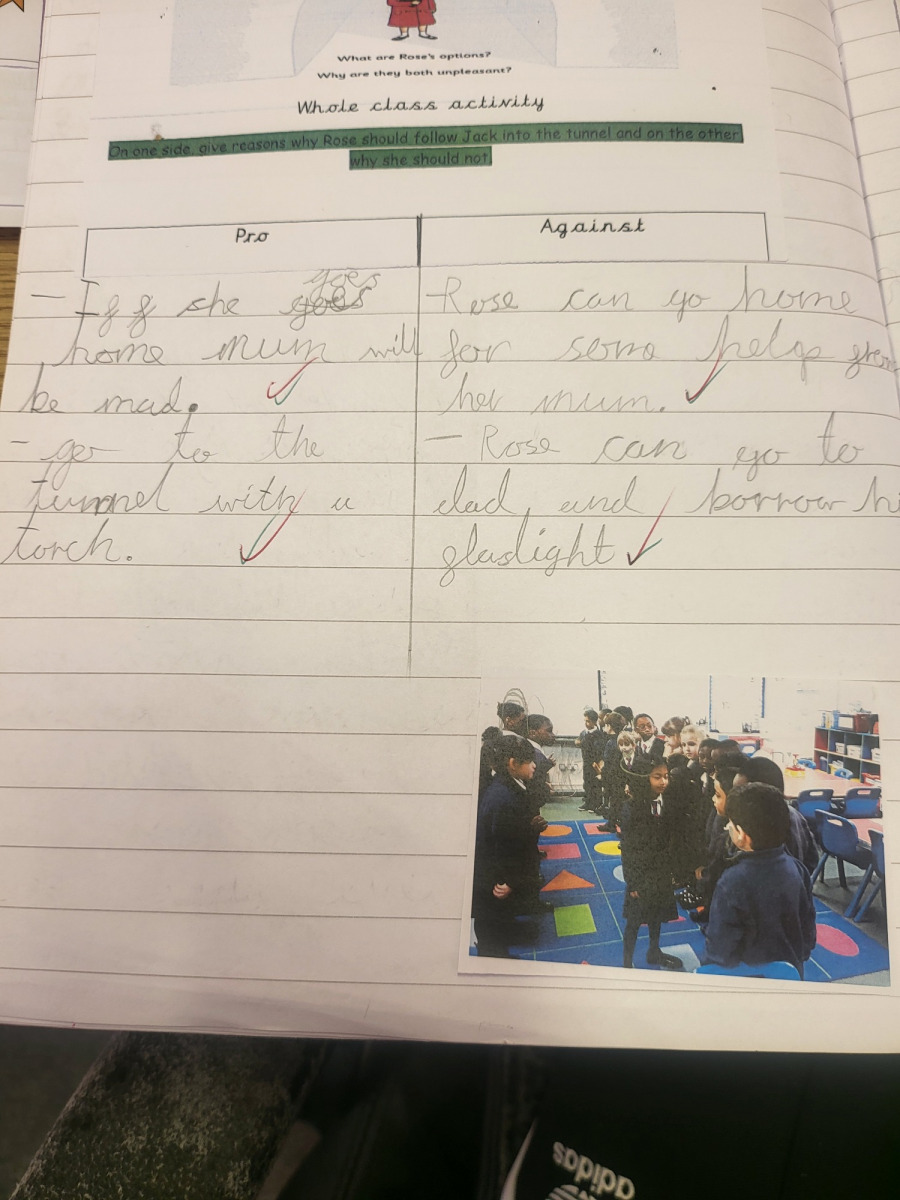 What are Rose's options?
Why are they both unpleasant?
Whole class activity
On one side, give reasons why Rose should follow Jack into the tunnel and on the other
why she should not.
Pro
Against
goes
- If f she goes
home mum will
be mad.
- go to the
tunnel with a
torch.
-Rose can go home
for some help
her mum.
- Rose can go to
dad, and borrow hi
glaslight
adidas